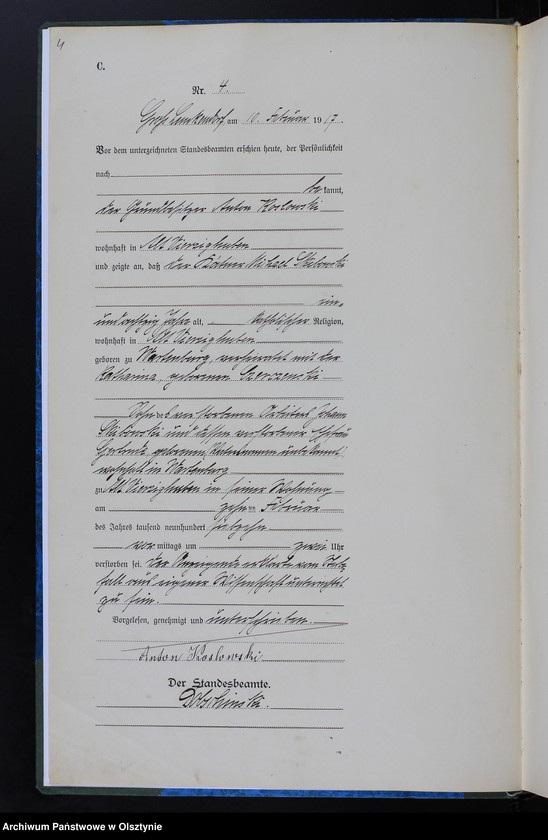 4
C.
Nr. 4.
Groß Lemkendorf am 10. Februar 1917.
Vor dem unterzeichneten Standesbeamten erschien heute, der Persönlichkeit
nach
be kannt,
der Grundbesitzer Anton Koslowski
wohnhaft in Alt Vierzighuben
und zeigte an, daß der Michael
ein
und achtzig Jahre alt, katholischer Religion,
wohnhaft in Alt Vierzighuben
geboren zu Wartenburg, verheiratet mit der
Katharina, geborenen
Sohn des verstorbenen Arbeiters Johann
und dessen verstorbener Ehefrau
geborenen, unbekannt
wohnhaft in Wartenburg
zu Alt Vierzighuben in seiner Wohnung
am zehnten Februar
des Jahres tausend neunhundert siebzehn
vor mittags um zwei Uhr
verstorben sei. Der Anzeigende erklärte vom Todes-
falle aus eigener Wissenschaft unterrichtet
zu sein.
Vorgelesen, genehmigt und unterschrieben.
Anton Koslowski
Der Standesbeamte.
Archiwum Państwowe w Olsztynie